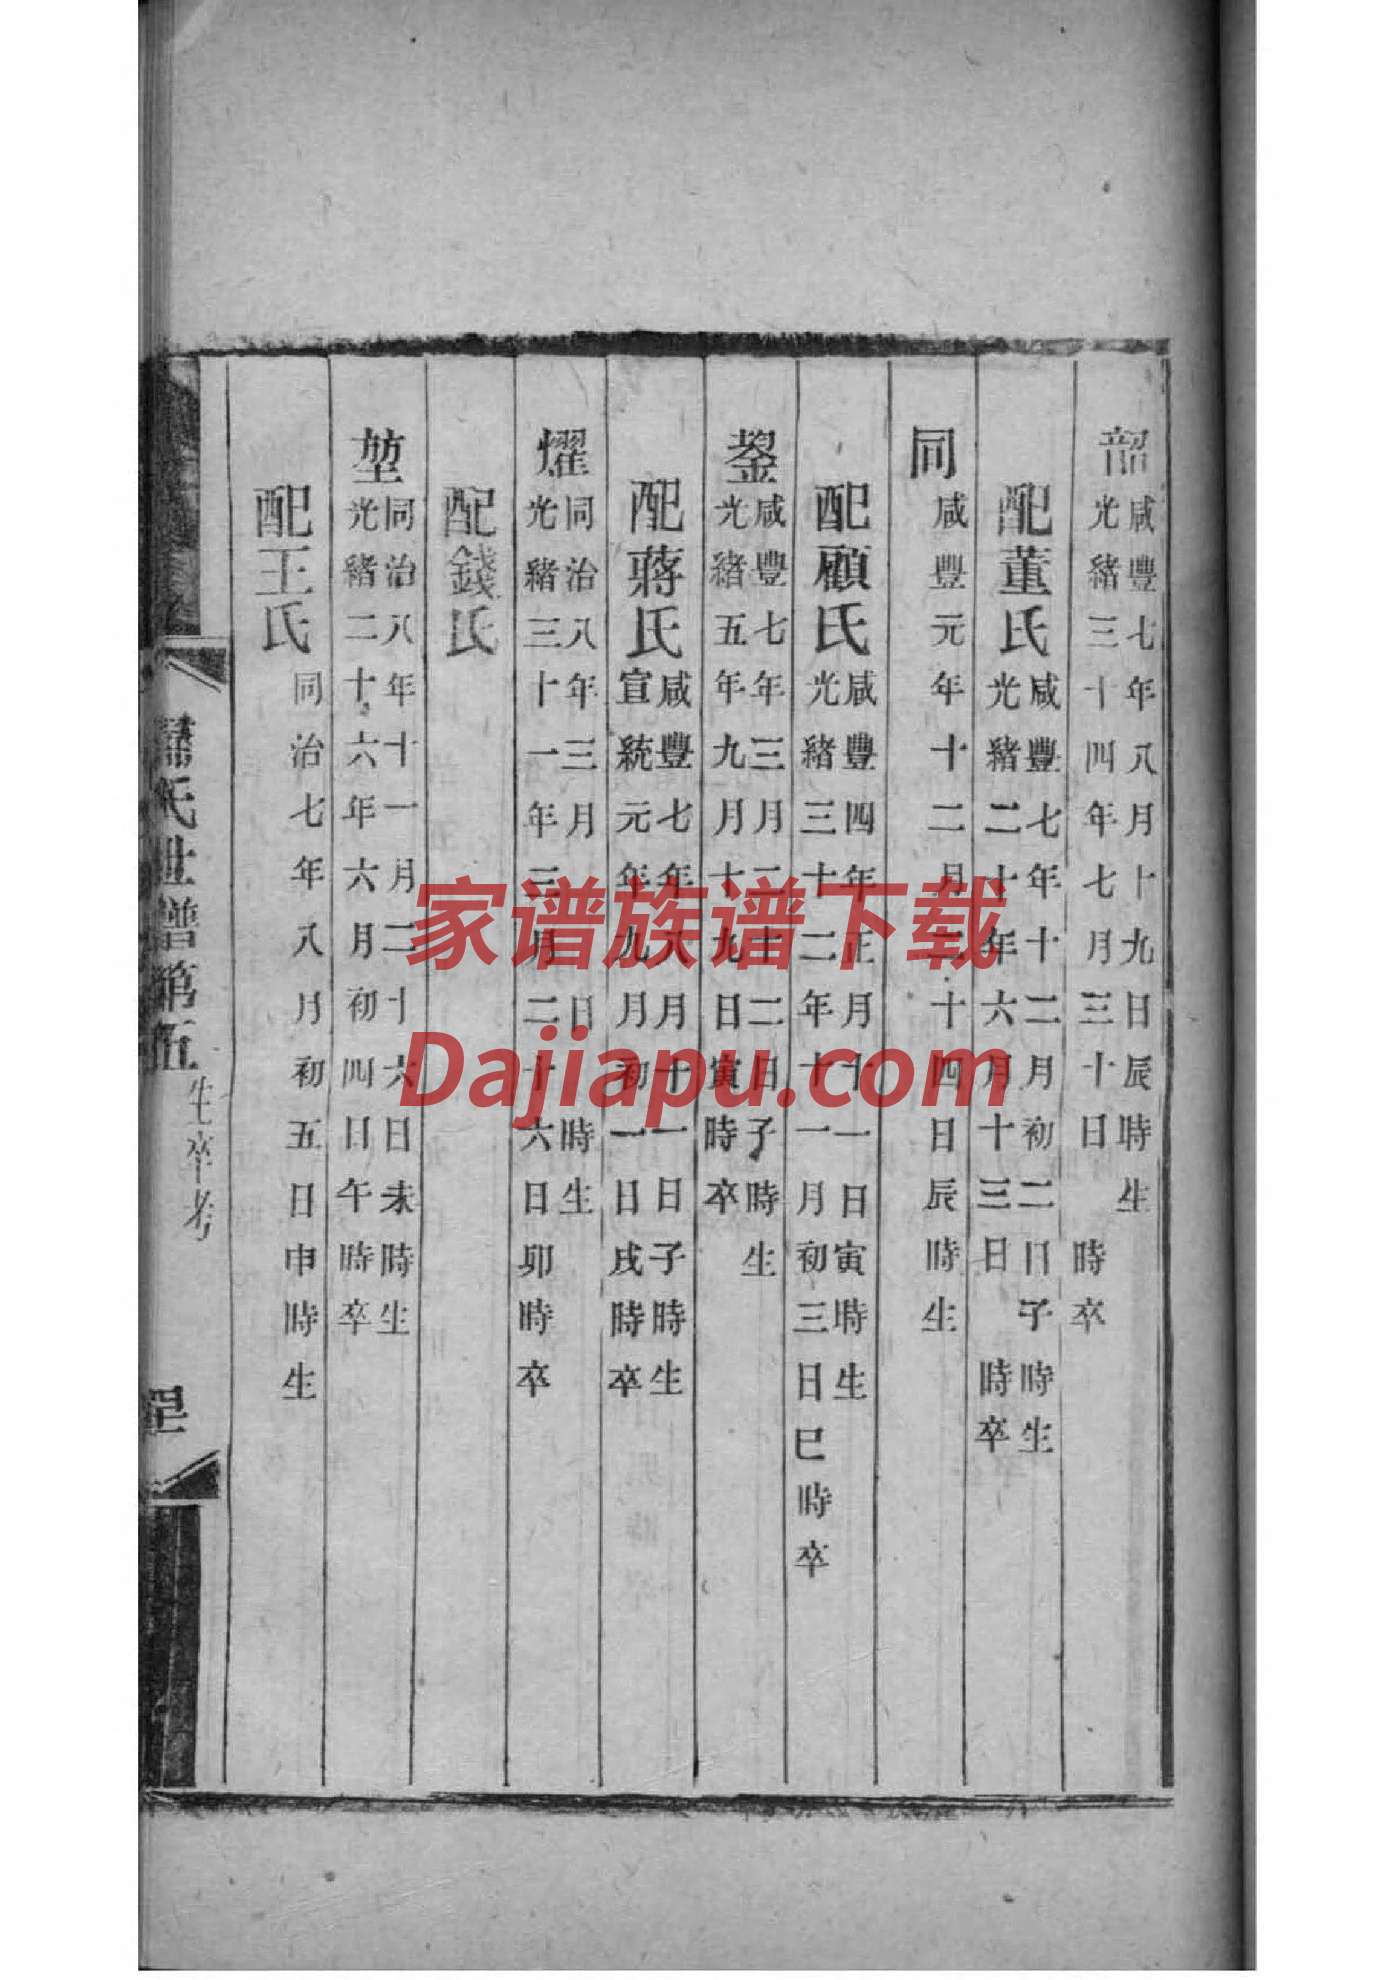 韶
咸豐七年八月十九日辰時生
光緒三十四年七月三十日 時卒
配董氏
咸豐七年十二月初二日子時生
光緒二十年六月十三日 時卒
同
咸豐元年十二月二十四日辰時生
配顧氏
咸豐四年正月十一日寅時生
光緒三十二年十一月初三日巳時卒
鋆
咸豐七年三月二十二日子時生
光緒五年九月十九日寅時卒
配蔣氏
咸豐七年八月十一日子時生
宣統元年九月初一日戌時卒
燿
同治八年三月 日 時生
光緒三十一年三月二十六日卯時卒
配錢氏
堃
同治八年十一月二十六日未時生
光緒二十六年六月初四日午時卒
配王氏
同治七年八月初五日申時生
氏世譜第伍
生卒考
家谱族谱下载
Dajiapu.com